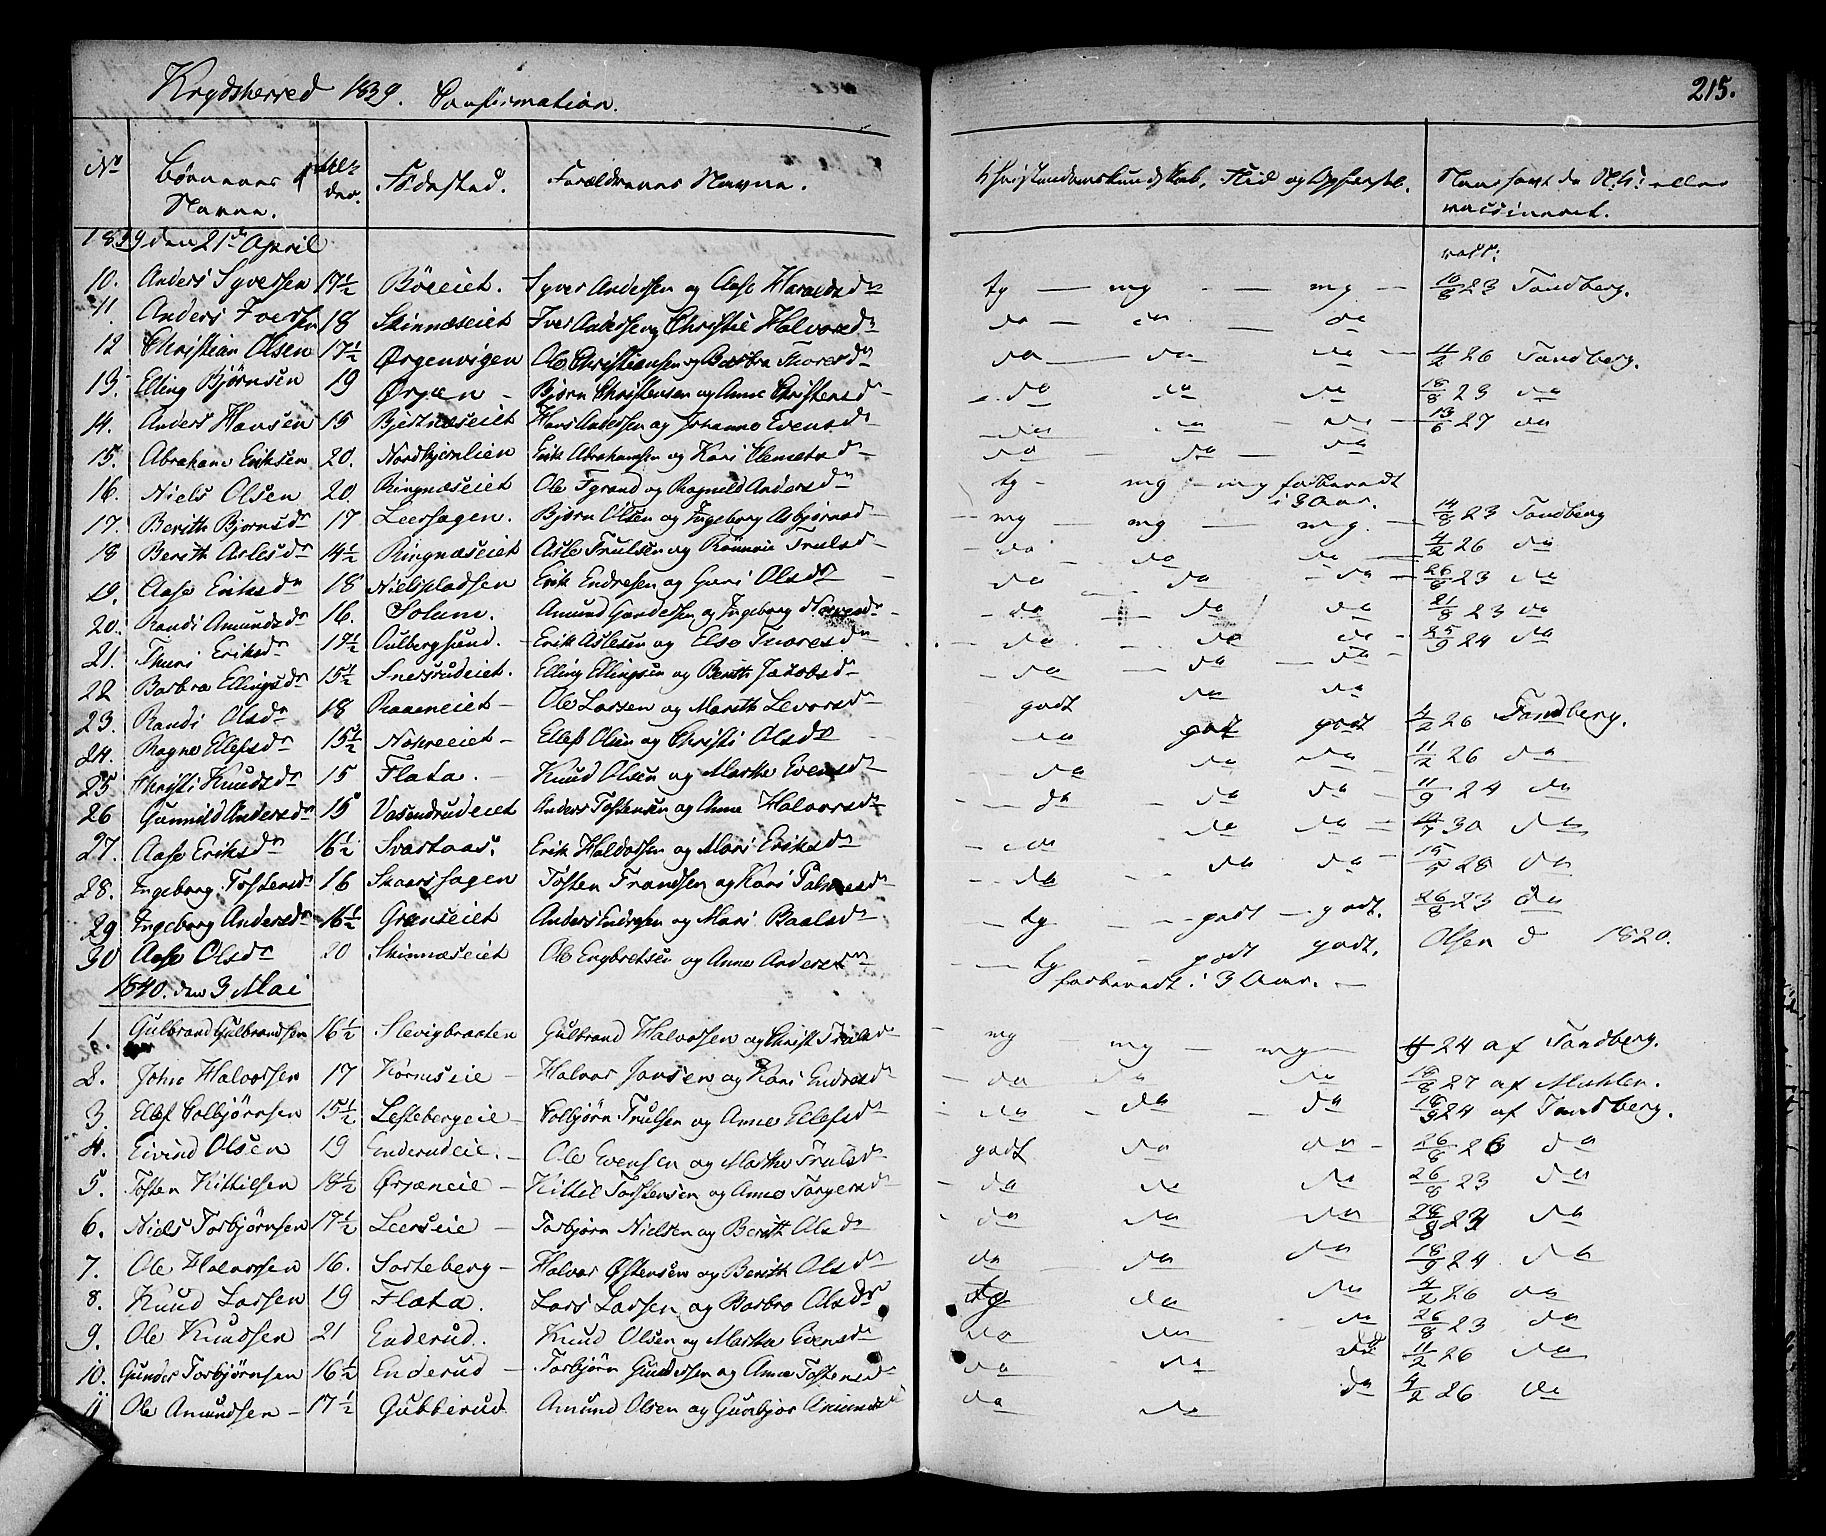 Krydsherred 1839. Confirmation.
215.
No Børnenes Navne. Alder. Fødested. Forældrenes Navne. Christendomskundskab, Flid og Opførsel. vaccineret.
1839 den 21de April vacc:
10. Anders Syversen 17½ Böeeiet. Syver Andersen og Aase Haralds dr tg — mg — mg — 16/8 23 Tandberg.
11. Anders Iversen 18 Skinnæseiet Iver og Christie Halvors dr do — do — do
12 Christian Olsen 17½ Ørgenvigen Ole Christiansen og Barbra Thores dr do — do do — 4/2 26 Tandberg.
13. Elling Bjørnsen 19 Ørjæn — Bjørn Christensen og Anne Christens dr do do do 18/8 23 do
14. Anders Hansen 15 Hans Anderssen og Johanne Evens dr do do do 13/6 27 do
15. Abraham Eriksen 20. Nordbjernlien Erik Abrahamsen og Kari Clemets dr do do do
16. Niels Olsen 20. Ringnæseiet Ole og Ragnild Anders dr tg — mg — mg forberedt i 3 Aar.
17. Berith Bjorns dr 17 Leersagen. Bjørn Olsen og Ingeborg Asbjørns dr mg — mg — mg. — 14/8 23 Tandberg
18 Berith Asles dr 14½ Ringnæseiet Asle Trulsen og Rönnie Truls dr do do do 4/2 26 do
19. Aase Eriks dr 18 Nielspladsen Erik Endresen og Guri Ols dr do do do 26/8 23 do
20. Randi Amunds dr 16. Solum. Amund og Ingeborg do do do 21/8 23 do
21. Thuri Eriks dr 14½ Aulbergsund. Erik Aslesen og Else Thores dr do do do 25/9 24 do
22 Barbra Ellings dr 15½ Snersrudeiet. Elling Ellingsen og Berith Jakobs dr do do do
23. Randi Ols dr 18 Raaeneiet — Ole Larsen og Marith Levors dr godt do do
24. Ragne Ellefs dr 15½ Nokreeiet — Ellef Olsen og Christi Ols dr do godt godt 4/2 26 Tandberg.
25 Knuds dr 15 Flata. — Knud Olsen og Marthe Evens dr do do do 11/2 26 do
26 Gunnild Anders dr 15 Vasendrudeiet Anders Tostensen og Anne Halvors dr do do do 11/9 24 do
27. Aase Eriks dr 16½ Svartaas. Erik Haldorsen og Mari Eriks dr do do do 30 do
28. Ingeborg Tostens dr 16 Skaarsagen Tosten Trondsen og Kari Palmes dr do do do 15/5 28 do
29 Ingeborg Anders dr 16½ Grænseiet Anders Endresen og Mari Paals dr tg — godt — godt. 26/8 23 do
30 Aase Ols dr 20 Skinnæseiet Ole Engbretsen og Anne Anders dr tg godt godt. Olsen d 1820.
forberedt i 3 Aar. —
1840. den 3 Mai
1. Gulbrand Gulbrandsen 16½ Slevigbraaten Gulbrand Halvorsen og Christi Truls dr mg — mg — mg — 24 af Tandberg.
2. John Halvorsen 17 Körneseie — Halvor Jonsen og Kari Endres dr do do do 18/8 27 af Muhler.
3. Ellef Colbjørnsen 15½ Leslebergeie — Colbjørn Trulsen og Anne Ellefs dr do do do 18/9 24 af Tandberg.
4. Eivind Olsen 19 Enderudeie. — Ole Evensen og Marthe Truls dr godt do do — 26/8 26 do
5. Tosten Kittilsen 18½ Ørjæneie — Kittil Torstensen og Anne Torgers dr do do do 26/8 23 do
6. Niels Torbjørnsen 17½ Leerseie — Torbjørn Nielsen og Berith Ols dr do do do 28/8 23 do
7. Ole Halvorsen 16. Sorteberg — Halvor Østensen og Berith Ols dr do do do 18/9 24. do
8. Knud Larsen 19 Flata. Lars Larsen og Barbro Ols dr tg do do 4/2 26 do
9. Ole Knudsen 21 Enderud. Knud Olsen og Marthe Evens dr do do do 26/8 23 do
10. Gunder Torbjørnsen 16½ Enderud — Torbjørn Gundersen og Anne Tostens dr do do do 11/2 26 do
11 Ole Amundsen — 17½ Gubberud Amund Olsen og Gunbjor Amunds dr do do do 4/2 26 do